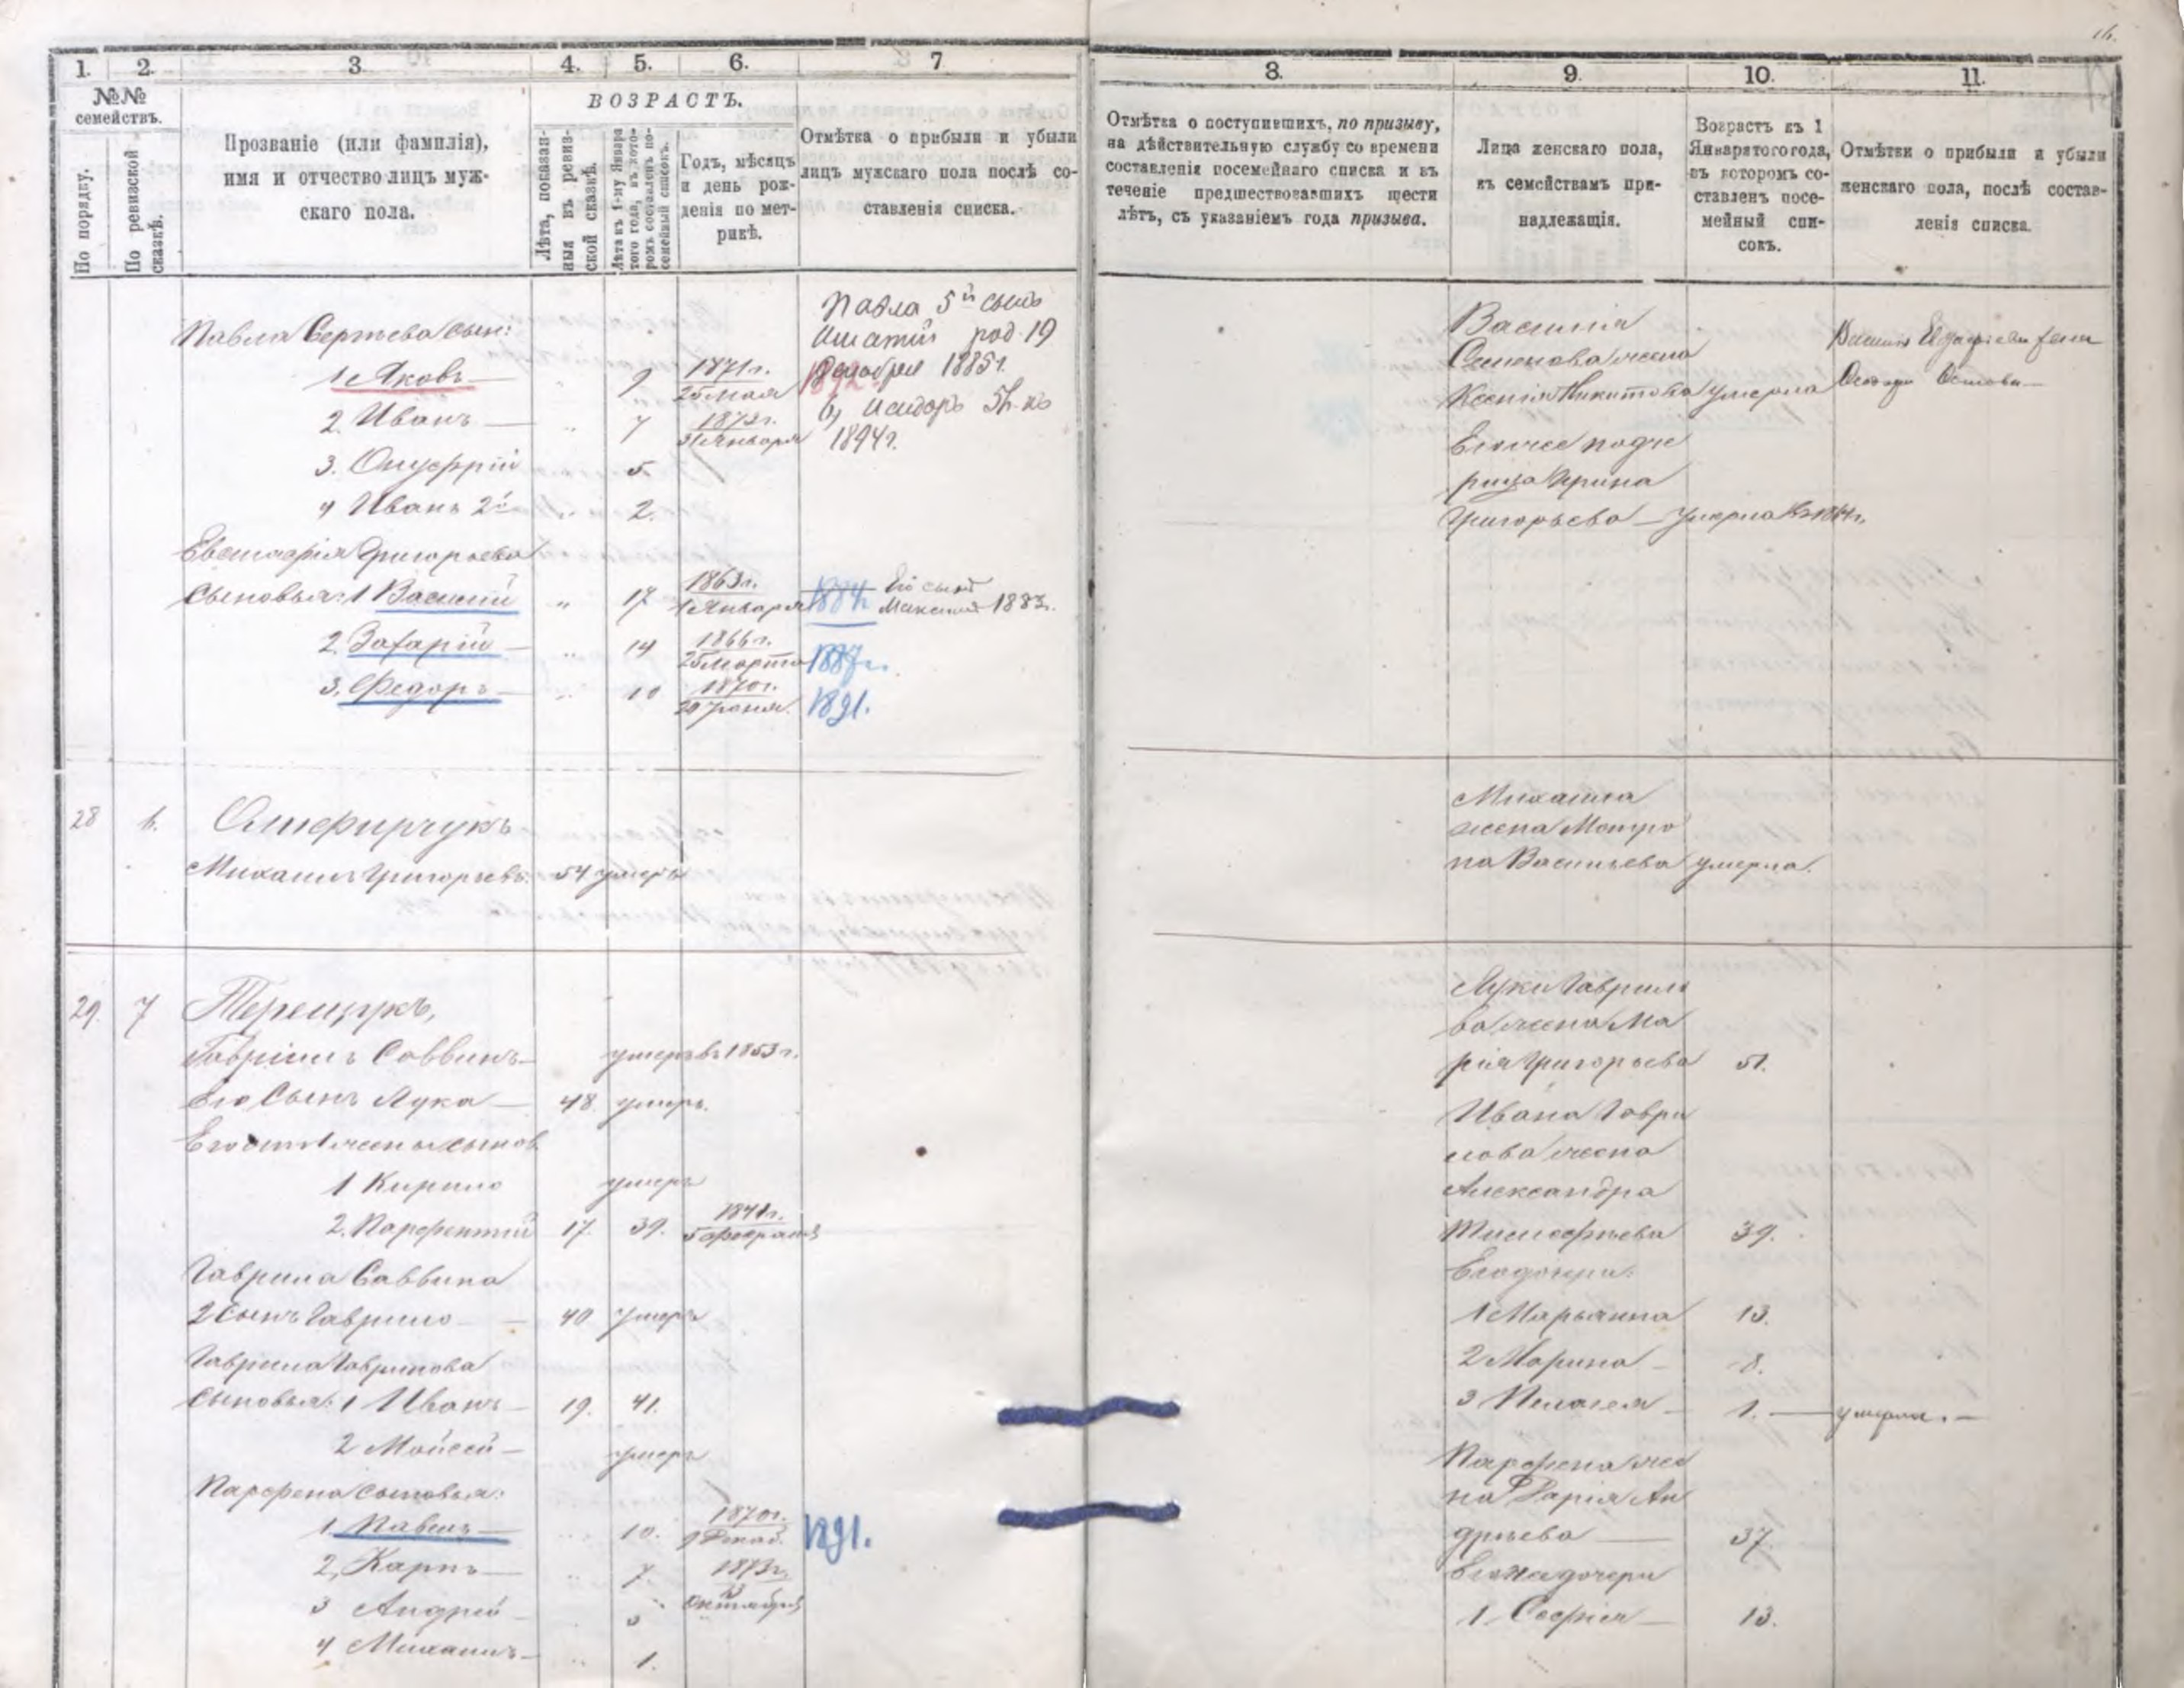 16.
1.
2.
3.
4.
5.
6.
7
№№
семействъ.
По порядку.
По ревизской
сказкѣ.
Прозваніе (или фамилія),
имя и отчество лицъ муж-
скаго пола.
ВОЗРАСТЪ.
Лѣта, показан-
ныя въ ревиз-
ской сказкѣ.
Лѣта къ 1-му Января
того года, въ кото-
ромъ составленъ по-
семейный списокъ.
Годъ, мѣсяцъ
и день рож-
денія по мет-
рикѣ.
Отмѣтка о прибыли и убыли
лицъ мужскаго пола послѣ со-
ставленія списка.
Павла Сергѣева сын:
1 Яковъ — 9 1871г. 25 Мая 1892
2. Иванъ — 7 1873г. 31 Января
3. Онуфрій 5.
4 Иванъ 2й 2.
Павла 5й сынъ
род. 19
Декабря 1885г.
6) Исидоръ
1894г.
Евстафія Григорьева
сыновья: 1 Василій 17 1863г. 1 Января 1884 Его сынъ
Максимъ 1883г.
2. Захарій — 14 1866г. 25 Марта 1887г.
3. Федоръ — 10 1870г. 20 Іюня. 1891.
28 6.
Михаилъ Григорьевъ. 54 умеръ
29. 7 Терещукъ,
Гавріилъ Саввинъ — умеръ въ 1853г.
Его Сынъ Лука — 48. умеръ.
Его отъ 1 жены сынов.
1 Кирило умеръ
2. Парфентій 17. 39. 1841г. 5 Февраля
Гаврила Саввина
2 Сынъ Гаврило — 40 умеръ
Гаврила Гаврилова
сыновья: 1 Иванъ — 19. 41.
2 Мойсей — умеръ
Парфена сыновья:
1 Павелъ — 10. 1870г. 9 Декаб. 1891.
2, Карпъ — 7. 1873г. 13 Октября
3 Андрей — 3
4 Михаилъ — 1.
8.
9.
10.
11.
Отмѣтка о поступившихъ, по призыву,
на дѣйствительную службу со времени
составленія посемейнаго списка и въ
теченіе предшествовавшихъ шести
лѣтъ, съ указаніемъ года призыва.
Лица женскаго пола,
къ семействамъ при-
надлежащія.
Возрастъ къ 1
Января того года,
въ которомъ со-
ставленъ посе-
мейный спи-
сокъ.
Отмѣтки о прибыли и убыли
женскаго пола, послѣ состав-
ленія списка.
Василія
Семенова жена
Ксенія Никитова умерла
Его же падче
рица Ирина
Григорьева — умерла
Михаила
жена Матро
на Васильева умерла.
Луки Гаврило
ва жена Ма
рія Григорьева 51.
Ивана Гаври
лова жена
Александра
Тимофѣева 39.
Его дочери:
1 Марьянна 13.
2 Марина — 8.
3 Пелагея — 1. — умерла. —
Парфена же
на Дарія Ан
дрѣева — 37.
Его же дочери
1. Софія — 13.